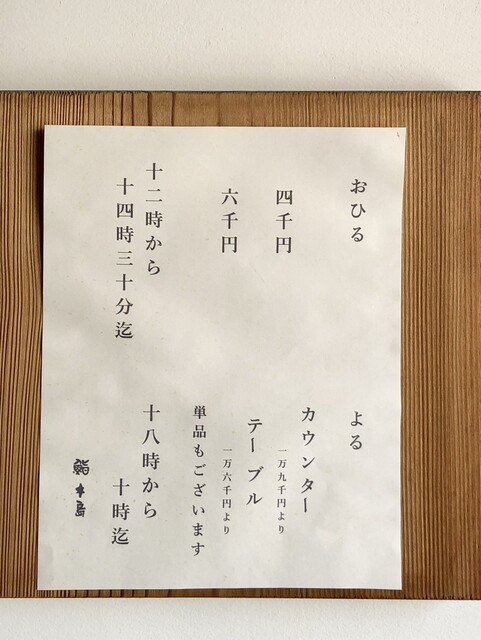 おひる
四千円
六千円
十二時から
十四時三十分迄
よる
カウンター
一万九千円より
テーブル
一万六千円より
単品もございます
十八時から
十時迄
鮨 本島